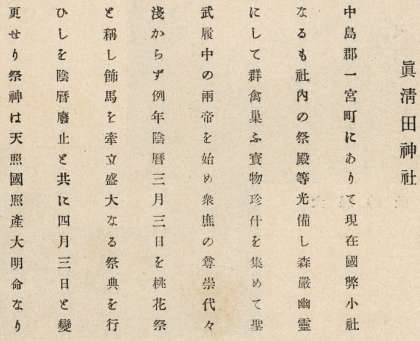 眞淸田神社
中島郡一宮町にありて現在國弊小社
なるも社內の祭殿等光備し森嚴幽靈
にして群禽巢ふ寳物珍什を集めて聖
武履中の兩帝を始め衆庶の尊崇代々
淺からず例年陰曆三月三日を桃花祭
と稱し飾馬を牽立盛大なる祭典を行
ひしを陰曆廢止と共に四月三日と變
更せり祭神は天照國照產大明命なり